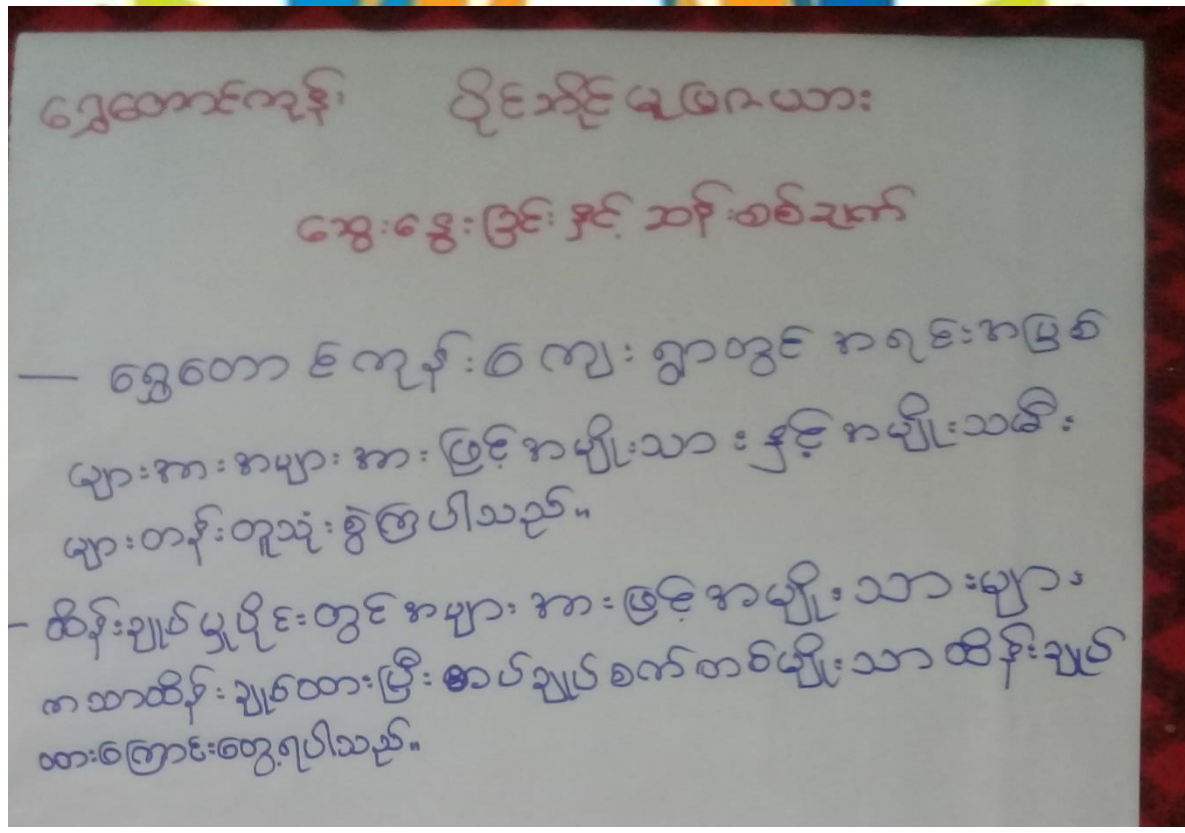 ရွှေတောင်ကုန်း ပိုင်ဆိုင်မှုဇယား
ဆွေးနွေးခြင်းနှင့် ဆန်းစစ်ချက်
— ရွှေတောင်ကုန်းကျေးရွာတွင် အရင်းအမြစ်
များအားအများအားဖြင့်အမျိုးသားနှင့်အမျိုးသမီး
များတန်းတူသုံးစွဲကြပါသည်။
- ထိန်းချုပ်မှုပိုင်းတွင်အများအားဖြင့်အမျိုးသားများ
ကသာထိန်းချုပ်ထားပြီးစပ်ချုပ်စက်တစ်မျိုးသာထိန်းချုပ်
ထားကြောင်းတွေ့ရပါသည်။